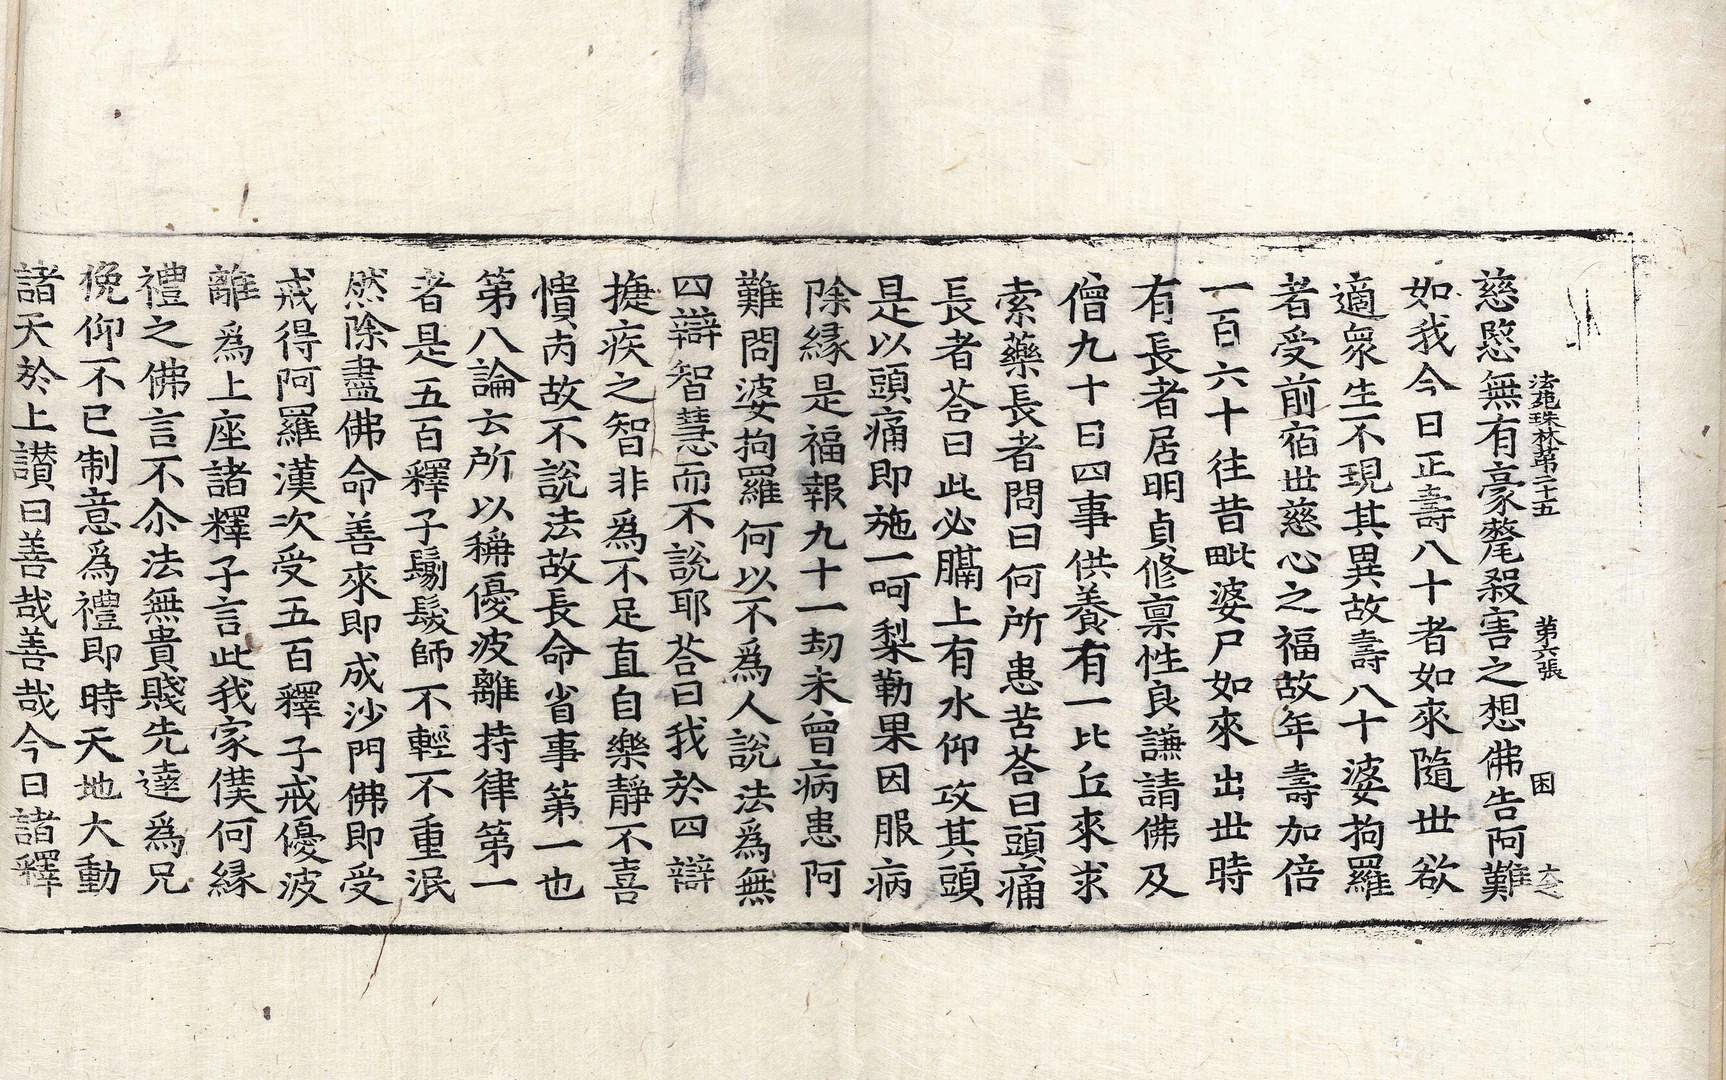 法苑珠林第二十五 第六張 困
慈愍無有豪氂殺害之想佛告阿難
如我今日正壽八十者如來隨世欲
適衆生不現其異故壽八十婆拘羅
者受前宿世慈心之福故年壽加倍
一百六十往昔毗婆尸如來出世時
有長者居明貞修禀性良謙請佛及
僧九十日四事供養有一比丘來求
索藥長者問曰何所患苦荅曰頭痛
長者荅曰此必膈上有水仰攻其頭
是以頭痛即施一呵梨勒果因服病
除縁是福報九十一劫未曾病患阿
難問婆拘羅何以不爲人說法爲無
四辯智慧而不說耶荅曰我於四辯
捷疾之智非爲不足直自樂靜不喜
憒丙故不說法故長命省事第一也
第八論云所以稱優波離持律第一
者是五百釋子鬀髮師不輕不重泯
然除盡佛命善來即成沙門佛即受
戒得阿羅漢次受五百釋子戒優波
離爲上座諸釋子言此我家僕何縁
禮之佛言不尒法無貴賤先達爲兄
俛仰不已制意爲禮即時天地大動
諸天於上讃曰善哉善哉今日諸釋